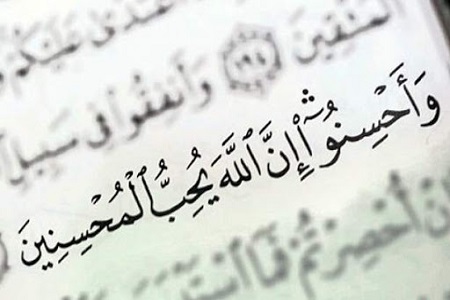 عَلَيْكُمْ
ٱلْمُتَّقِينَ ١٩٤ وَأَنفِقُوا۟ فِى سَبِيلِ
وَأَحْسِنُوٓا۟ ۛ إِنَّ ٱللَّهَ يُحِبُّ ٱلْمُحْسِنِينَ
أُحْصِرْتُمْ فَمَا ٱسْتَ